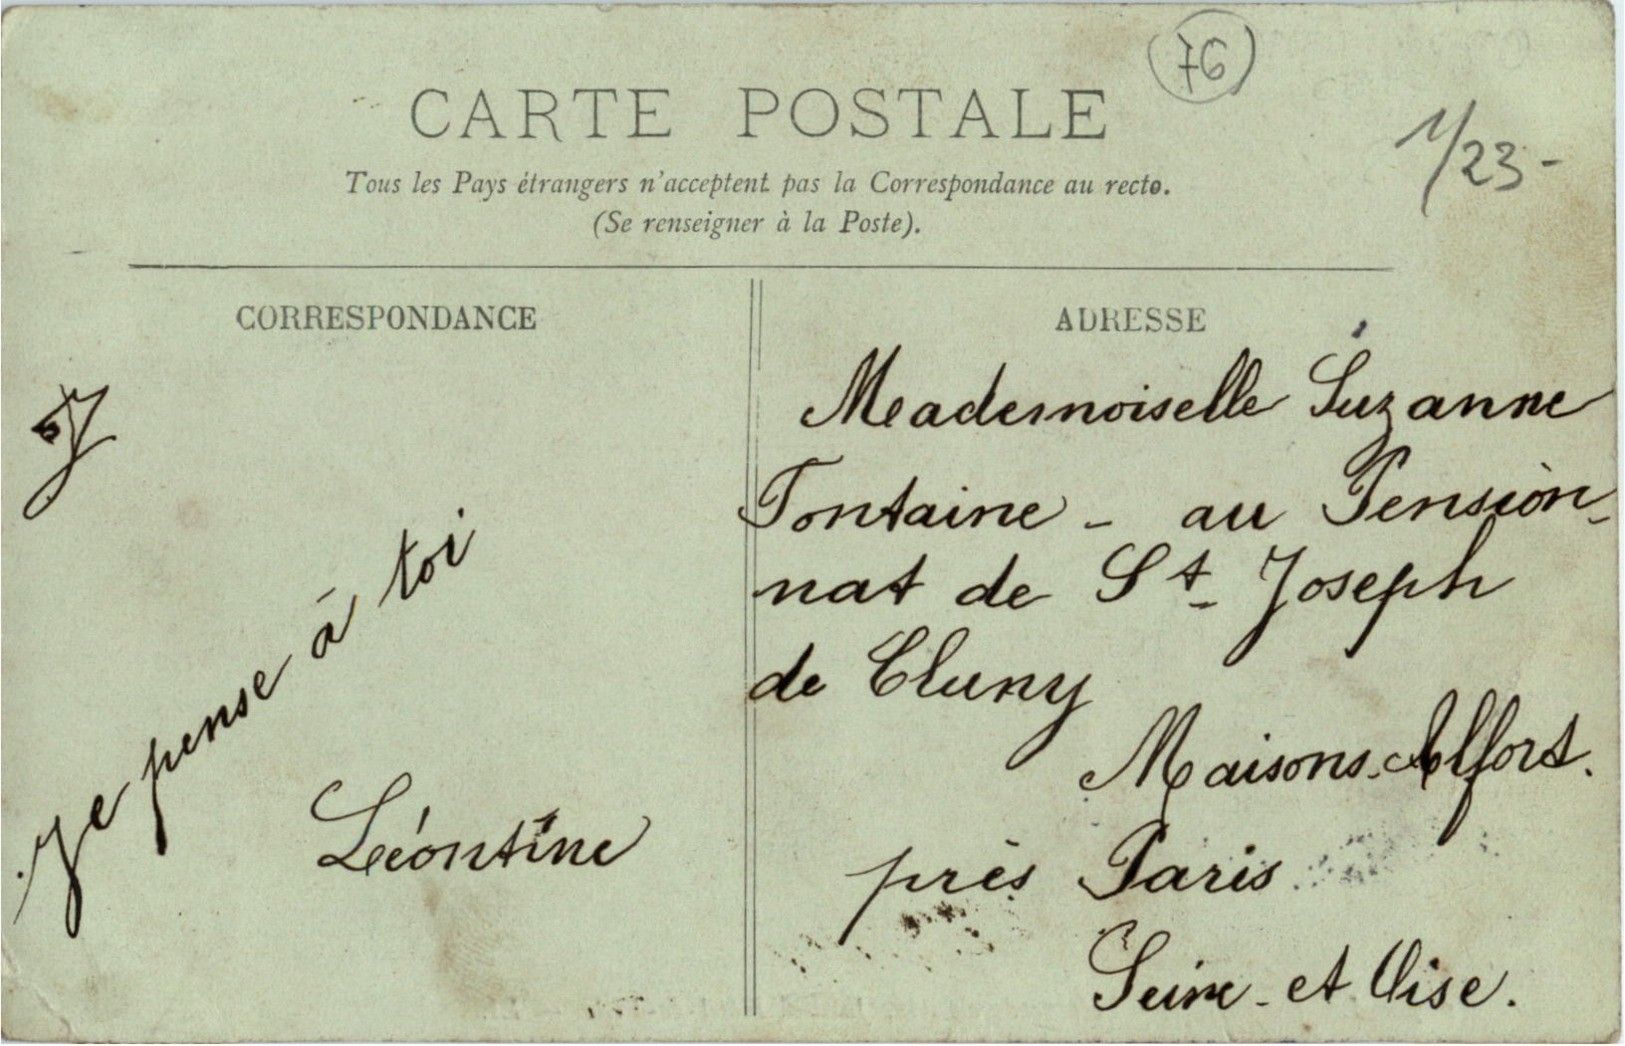 76
1/23-
CARTE POSTALE
Tous les Pays étrangers n'acceptent pas la Correspondance au recto.
(Se renseigner à la Poste).
CORRESPONDANCE
Je pense à toi
Léontine
ADRESSE
Mademoiselle Suzanne
Fontaine - au Pension-
nat de St Joseph
de Cluny
Maisons-Alfort.
près Paris
Seine-et Oise.